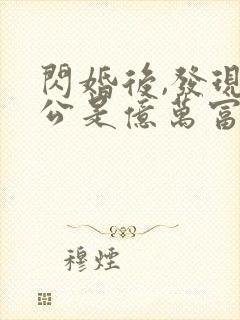 閃婚後,發現
公是億萬富
穆煙